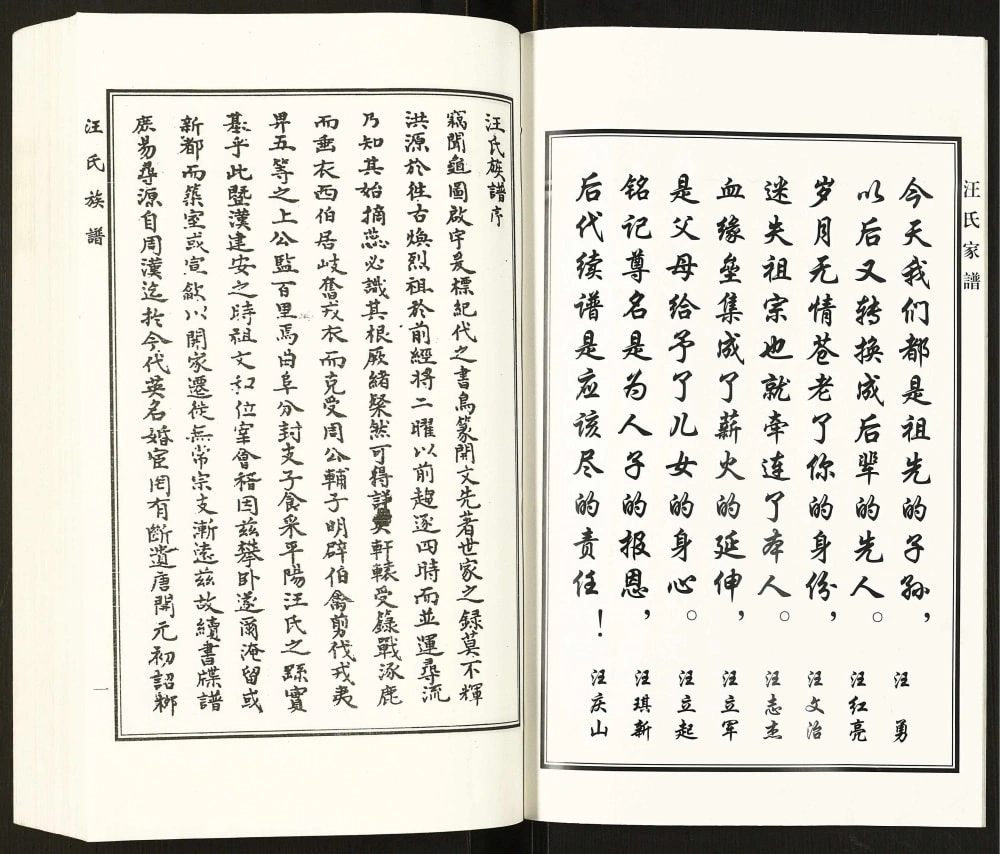 汪氏家譜
今天我们都是祖先的子孙，汪勇
以后又转换成后辈的先人。汪红亮
岁月无情苍老了你的身份，汪文治
迷失祖宗也就牵连了本人。汪志杰
血缘垒集成了薪火的延伸，汪立军
是父母给予了儿女的身心。汪立起
铭记尊名是为人子的报恩，汪琪新
后代续谱是应该尽的责任！汪庆山
汪氏族譜序
竊聞龜圖啟字爰標紀代之書鳥篆開文先著世家之録莫不輝
洪源於徃古煥烈祖於前經将二曜以前趨逐四時而並運尋流
乃知其始摘蕊必識其根厥緒粲然可得詳矣軒轅受籙戰涿鹿
而垂衣西伯居岐奮戎衣而克受周公輔子明辟伯禽剪伐戎夷
畀五等之上公監百里焉曲阜分封支子食采平陽汪氏之繇實
基乎此暨漢建安之時祖文和位宰會稽因兹攀卧遂爾淹留或
新都而築室或宣歙以開家遷徙無常宗支漸遠兹故續書牒譜
庶易尋源自周漢迄扵今代英名婚宦罔有斷遺唐開元初詔鄉
汪氏族譜
一